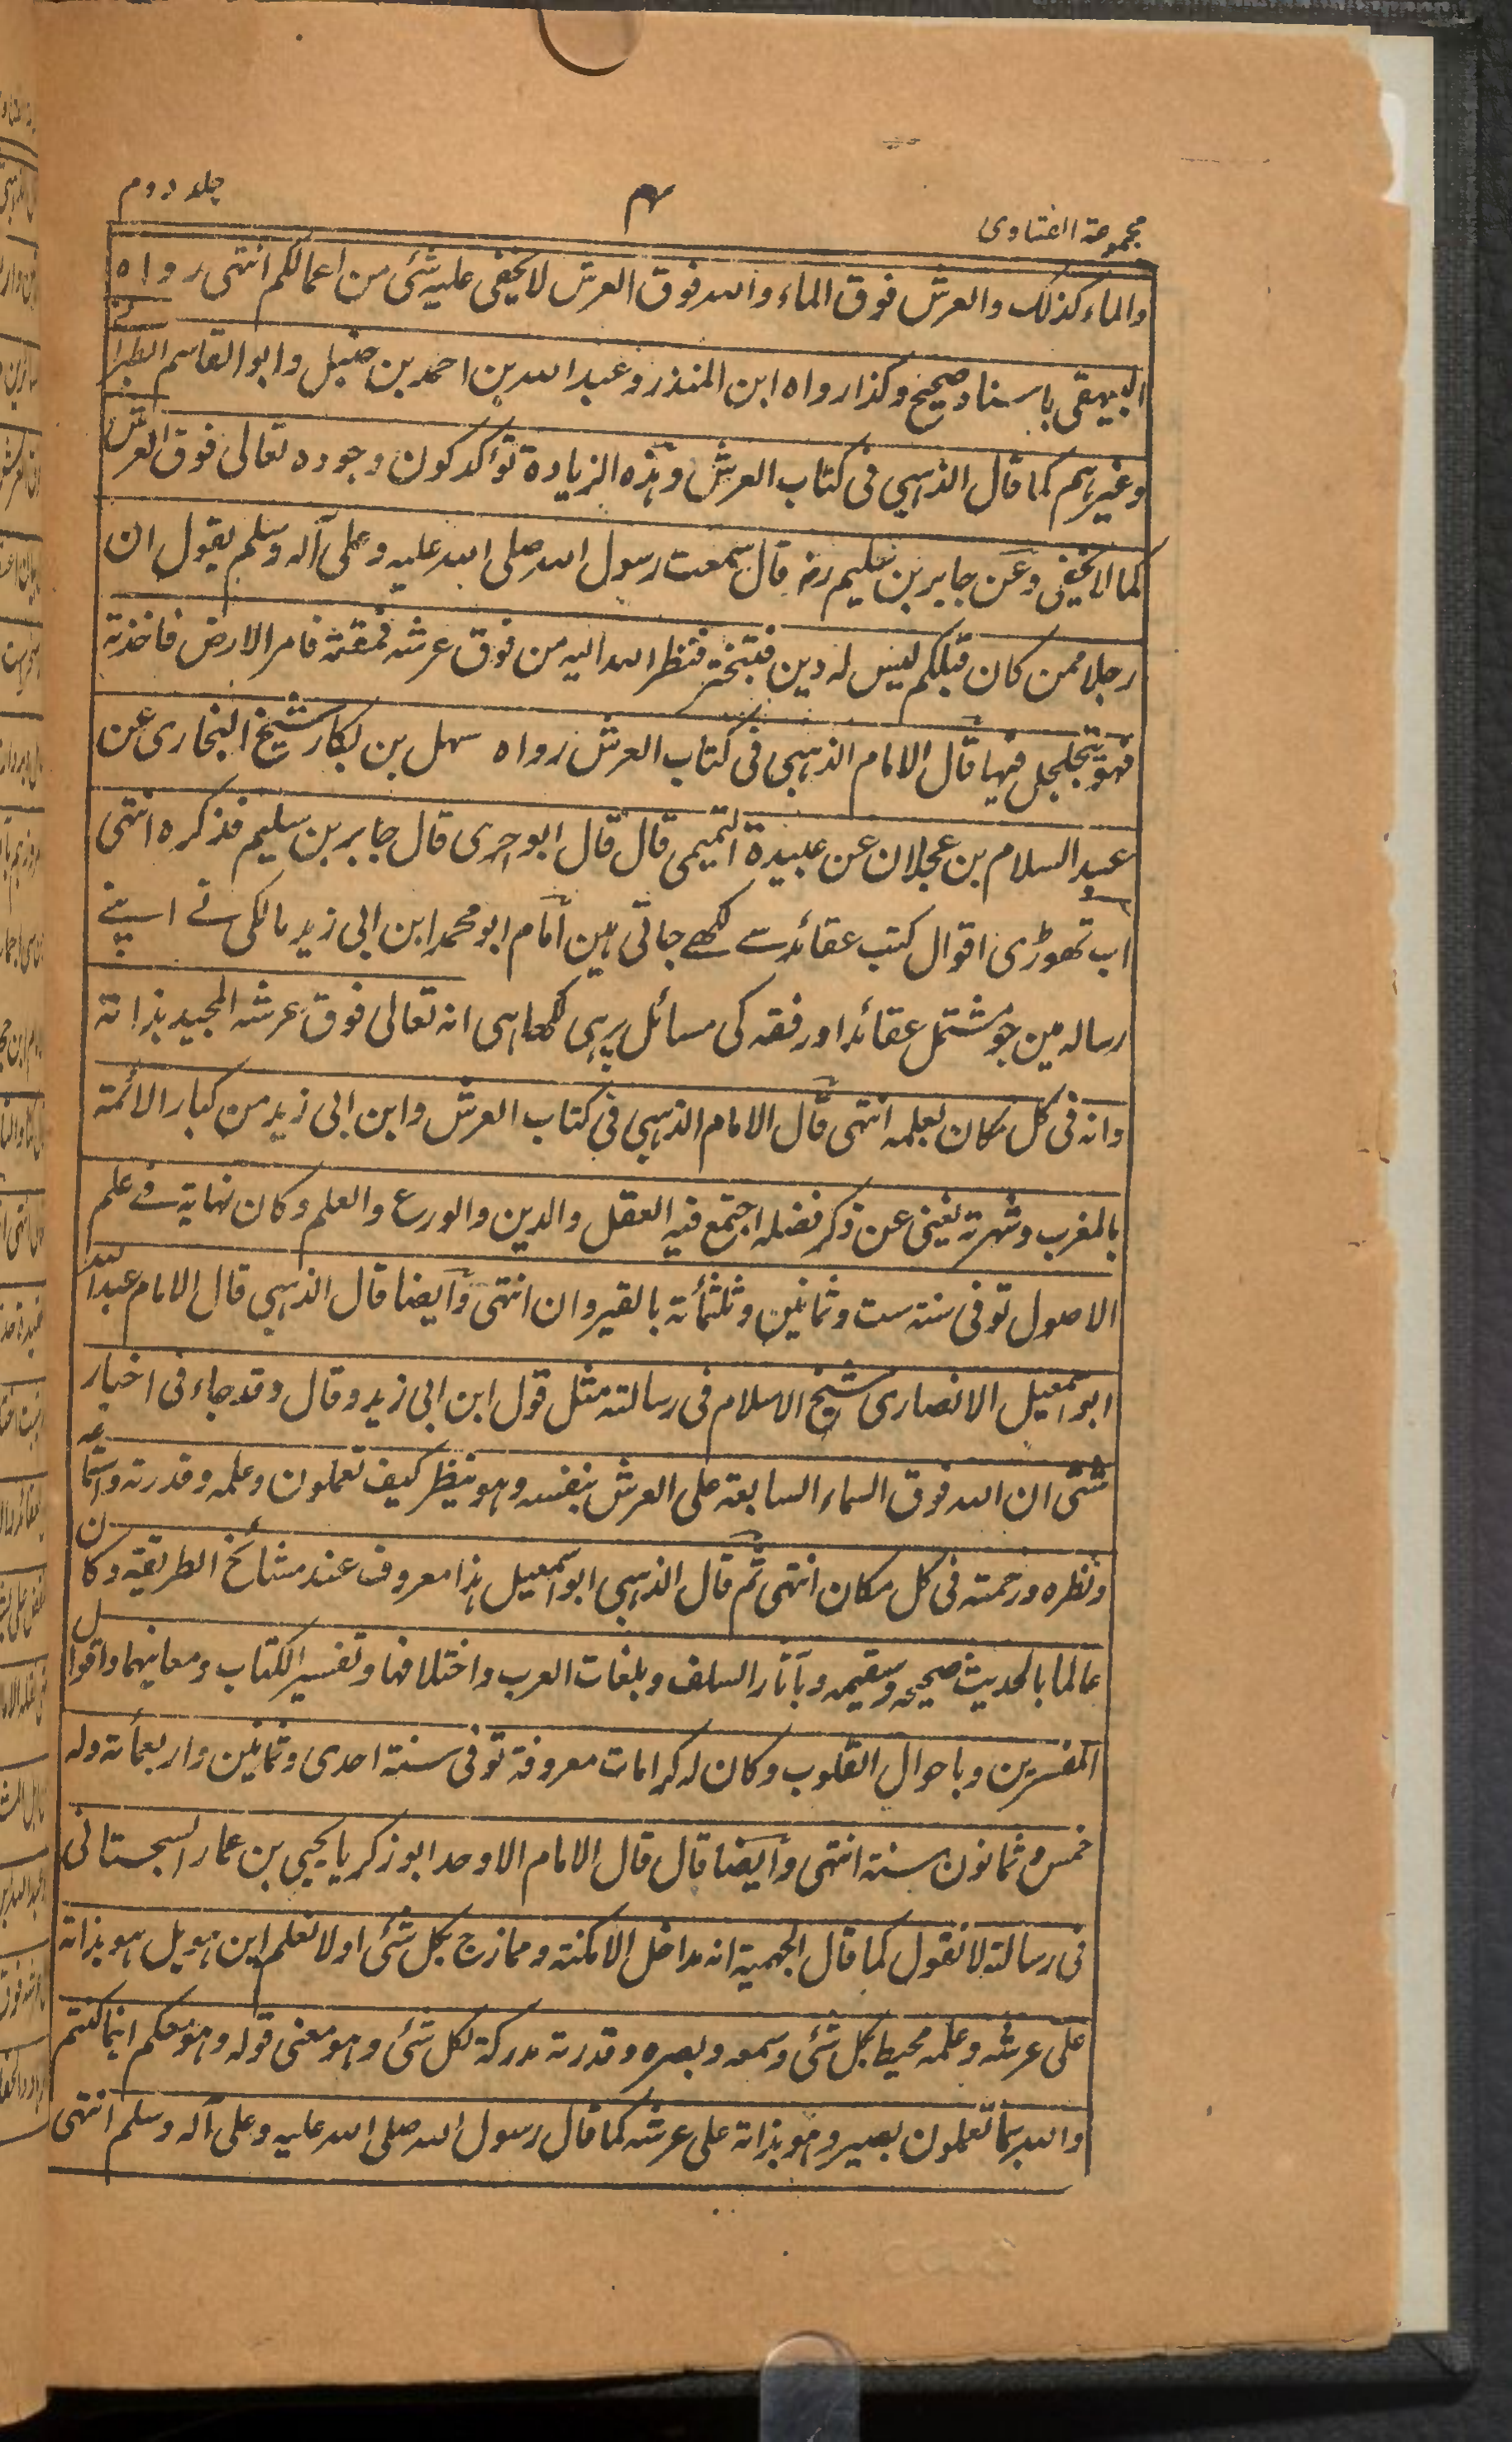 مجموعة الفتاوى
۴
جلد دوم
والماء كذلك والعرش فوق الماء والله فوق العرش لا يخفى عليه شئ من اعمالكم انتهى رواه
البيهقى باسناد صحيح وكذا رواه ابن المنذر وعبد الله بن احمد بن حنبل وابو القاسم الطبرانى
وغيرهم كما قال الذهبى فى كتاب العرش وهذه الزيادة تؤكد كون وجوده تعالى فوق العرش
كما لا يخفى وعن جابر بن سليم رض قال سمعت رسول الله صلى الله عليه وعلى آله وسلم يقول ان
رجلا ممن كان قبلكم ليس له دين فتبختر فنظر الله اليه من فوق عرشه فمقته فامر الارض فاخذته
فهو يتجلجل فيها قال الامام الذهبى فى كتاب العرش رواه سهل بن بكار شيخ البخارى عن
عبد السلام بن عجلان عن عبيدة التميمى قال قال ابو جرى قال جابر بن سليم فذكره انتهى
اب تهوڑى اقوال كتب عقائد سے لكھے جاتى ہين امام ابو محمد ابن ابى زيد مالكى نے اپنے
رساله مين جو مشتمل عقائد اور فقه كى مسائل پر ہى لكھا ہى انه تعالى فوق عرشه المجيد بذاته
وانه فى كل مكان بعلمه انتهى قال الامام الذهبى فى كتاب العرش وابن ابى زيد من كبار الائمة
بالمغرب وشهرته تغنى عن ذكر فضله اجتمع فيه العقل والدين والورع والعلم وكان نهاية فے علم
الاصول توفى سنة ست وثمانين وثلثمائة بالقيروان انتهى وايضا قال الذهبى قال الامام عبد الله
ابو اسمعيل الانصارى شيخ الاسلام فى رسالته مثل قول ابن ابى زيد وقال وقد جاء فى اخبار
شتى ان الله فوق السماء السابعة على العرش بنفسه وهو ينظر كيف تعملون وعلمه وقدرته واستماعه
ونظره ورحمته فى كل مكان انتهى ثم قال الذهبى ابو اسمعيل هذا معروف عند مشائخ الطريقة وكان
عالما بالحديث صحيحه وسقيمه وبآثار السلف وبلغات العرب واختلافها وتفسير الكتاب ومعانيهما واقوال
المفسرين وباحوال القلوب وكان له كرامات معروفة توفى سنة احدى وثمانين واربعمائة وله
خمس وثمانون سنة انتهى وايضا قال قال الامام الاوحد ابو زكريا يحيى بن عمار السجستانى
فى رسالة لا نقول كما قال الجهمية انه مداخل الامكنة وممازج بكل شئ او لا نعلم اين هو بل هو بذاته
على عرشه وعلمه محيط بكل شئ وسمعه وبصره وقدرته مدركة لكل شئ وهو معنى قوله وهو معكم اينما كنتم
والله بما تعملون بصير وهو بذاته على عرشه كما قال رسول الله صلى الله عليه وعلى آله وسلم انتهى